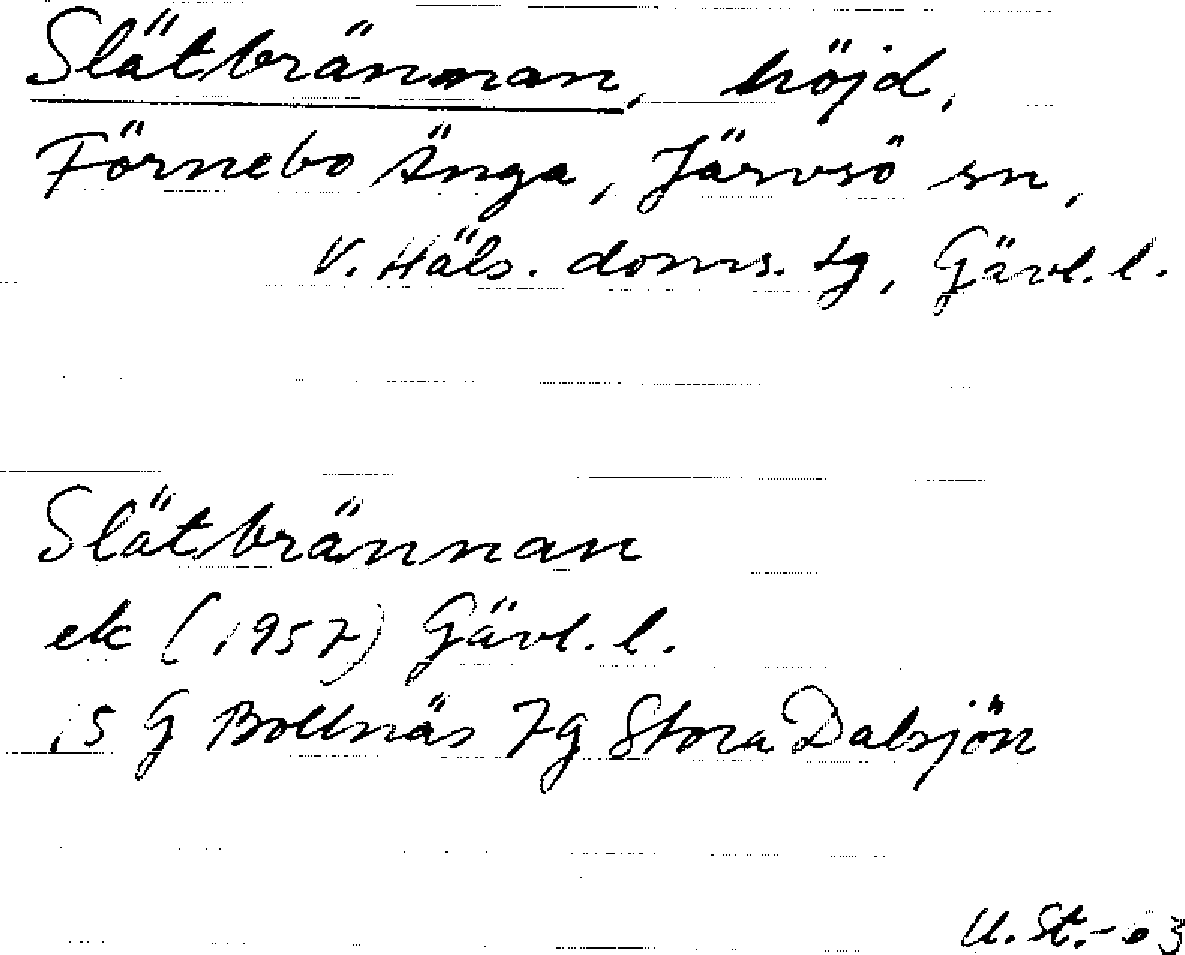 Slätbrännan, höjd,
Förnebo Änga, Järvsö sn,
V. Häls. doms. tg, Gävl. l.
Slätbrännan
ek (1957) Gävl. l.
15 G Bollnäs 7g Stora Dalsjön
U. St. -03